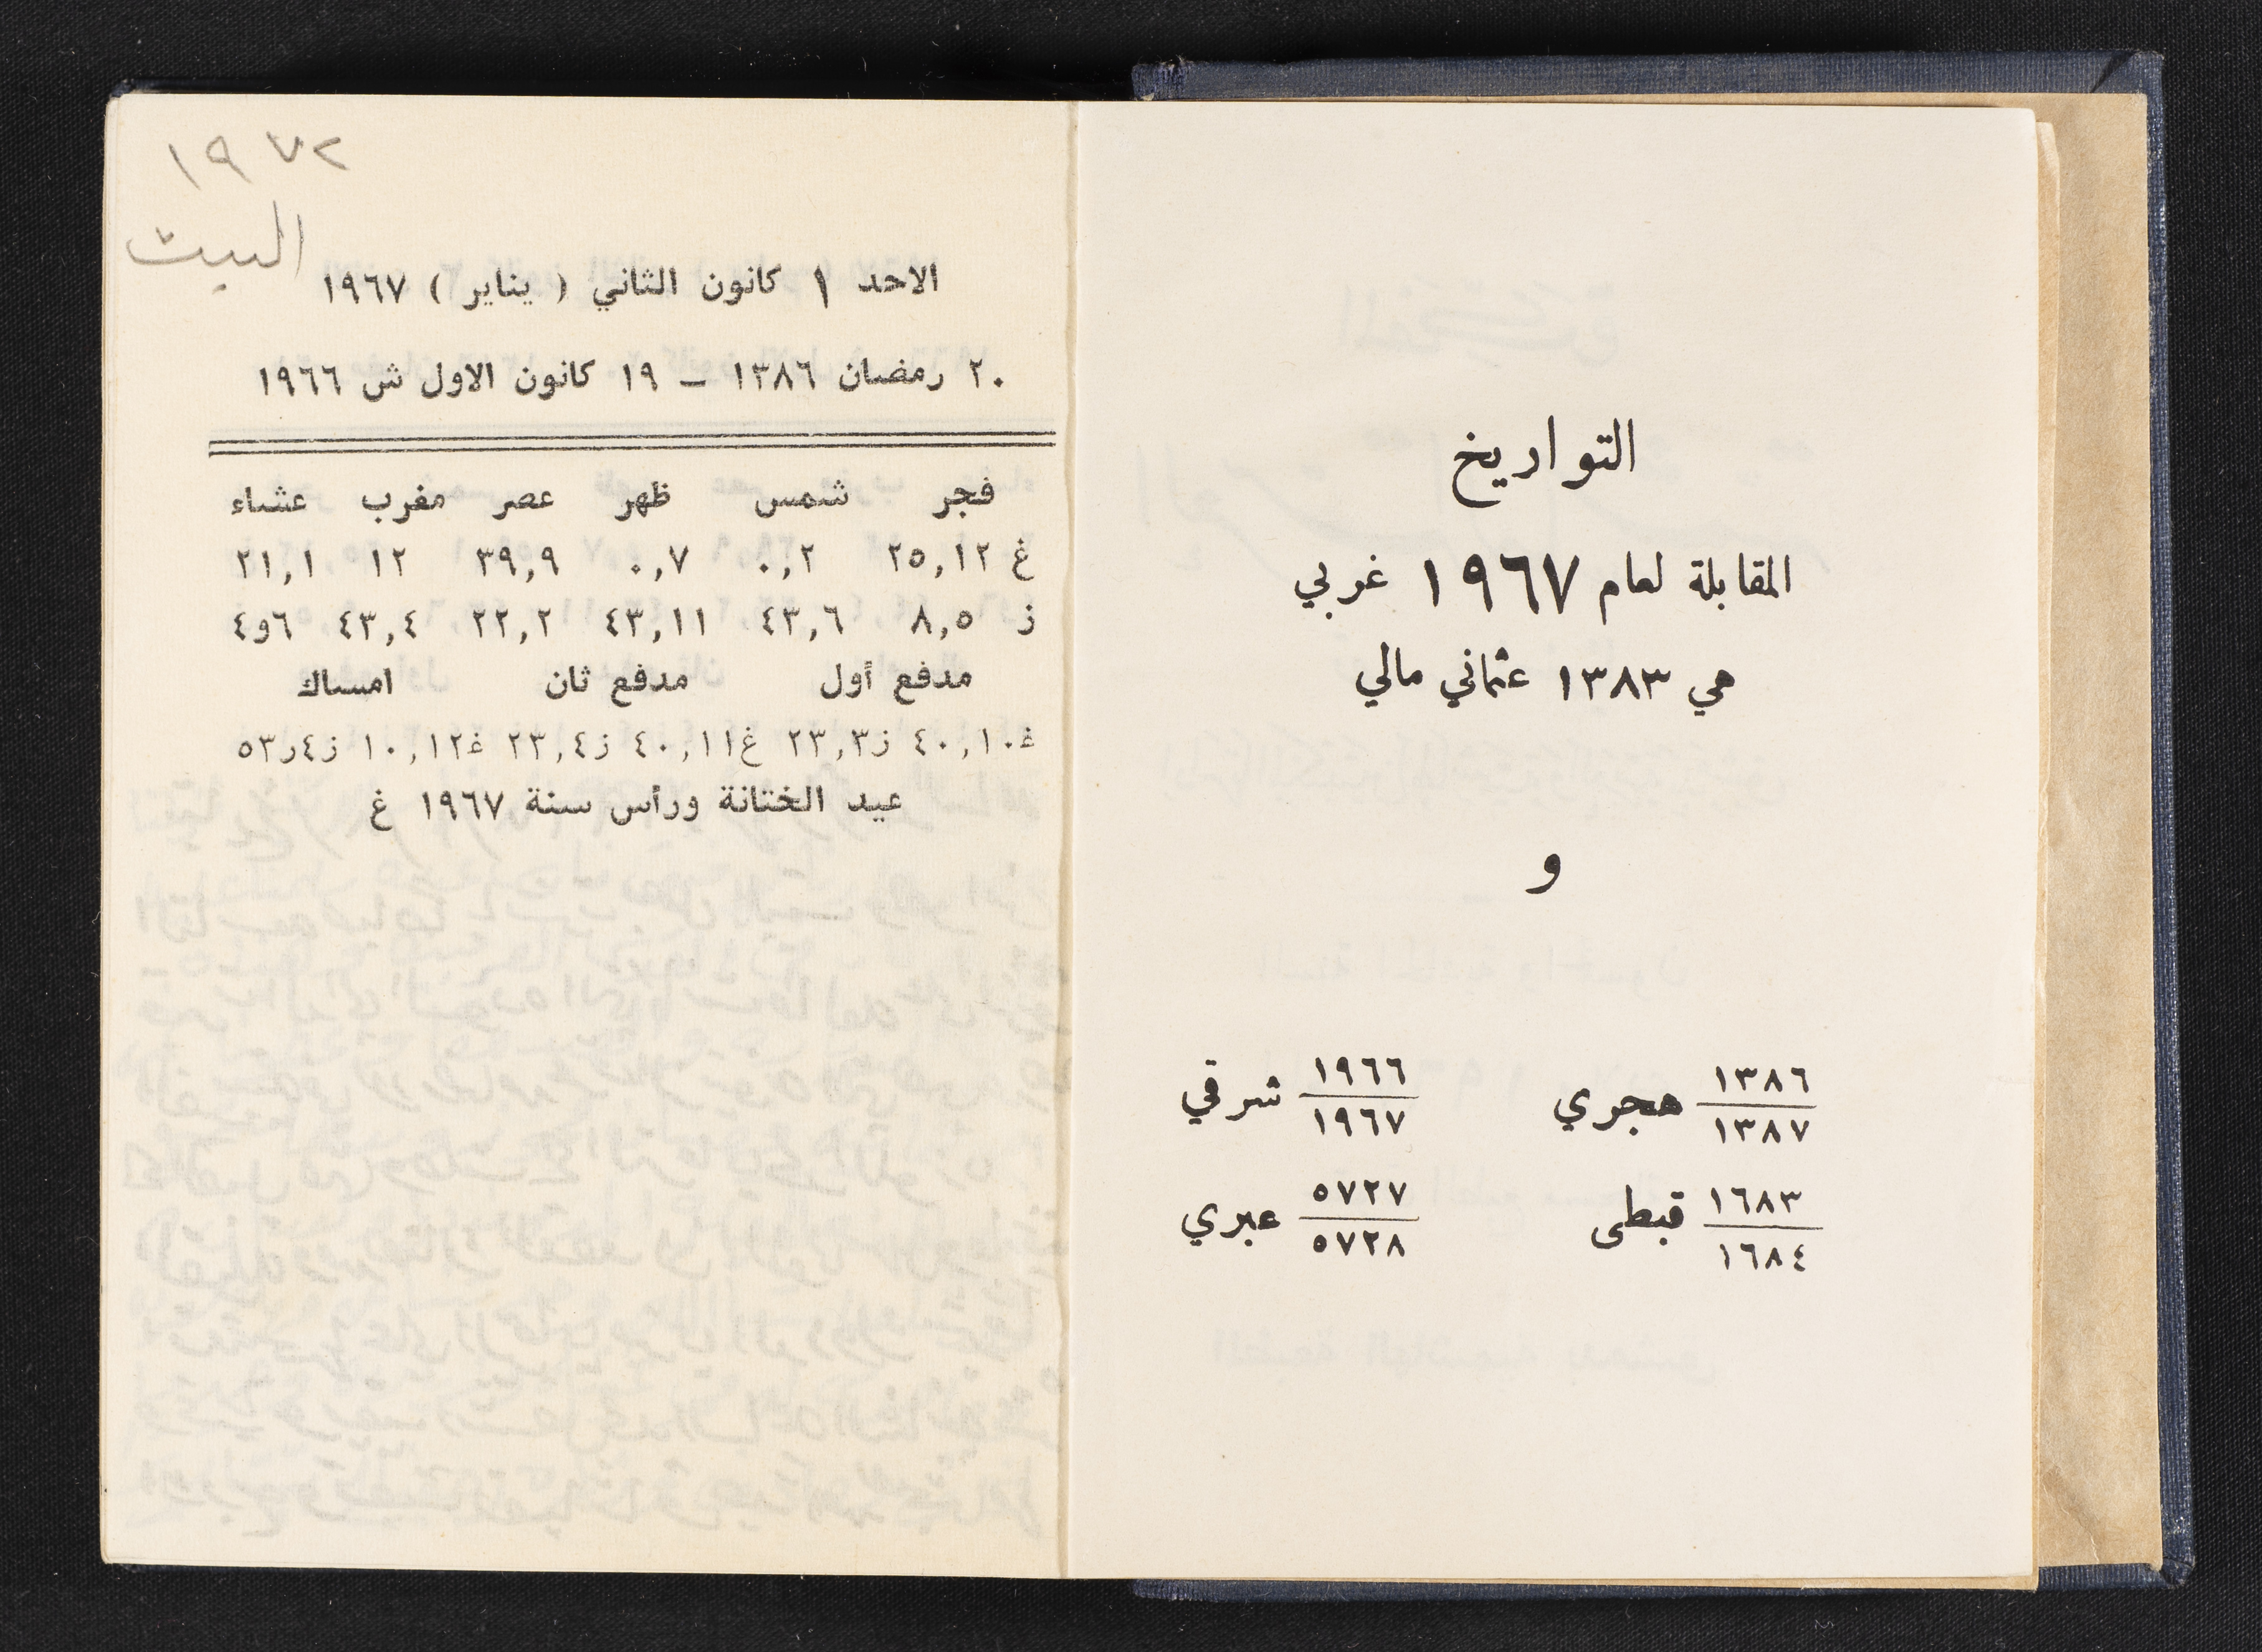 التواريخ
المقابلة لعام ١٩٦٧ غربي
هي ١٣٨٣ عثماني مالي
و
١٣٨٦ / ١٣٨٧ هجري ١٩٦٦ / ١٩٦٧ شرقي
١٦٨٣ / ١٦٨٤ قبطى ٥٧٢٧ / ٥٧٢٨ عبري
١٩٧٢
البيت
الاحد ١ كانون الثاني ( يناير ) ١٩٦٧
٢٠ رمضان ١٣٨٦ – ١٩ كانون الاول ش ١٩٦٦
فجر شمس ظهر عصر مغرب عشاء
غ ٢٥,١٢ ٠,٢ ٠,٧ ٣٩,٩ ١٢ ٢١,١
ز ٨,٥ ٤٣,٦ ٤٣,١١ ٢٢,٢ ٤٣,٤ ٤و٦
مدفع أول مدفع ثان امساك
غ٤٠,١٠ ز٢٣,٣ غ٤٠,١١ ز٢٣,٤ غ١٠,١٢ ز٥٣ر٤
عيد الختانة ورأس سنة ١٩٦٧ غ